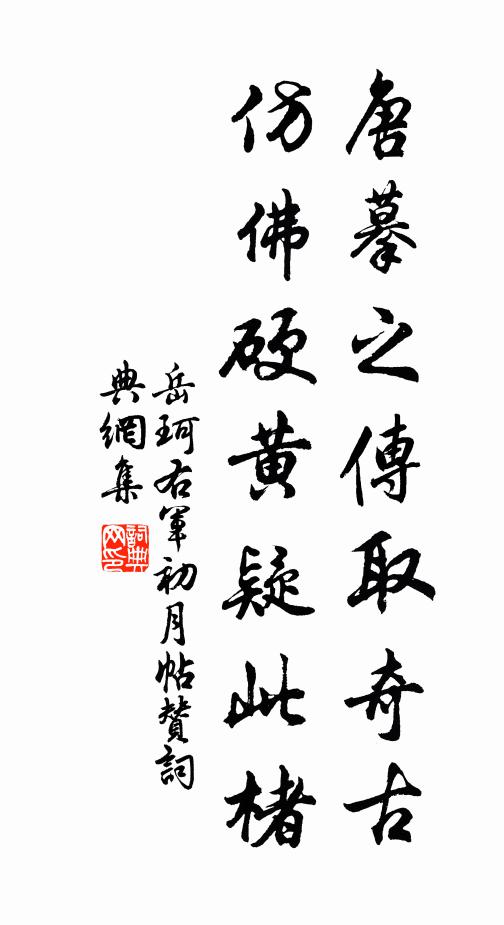 唐摹之傳取奇古
仿佛硬黃疑此楮
岳珂右軍初月帖贊詞
典網集
詞典网印